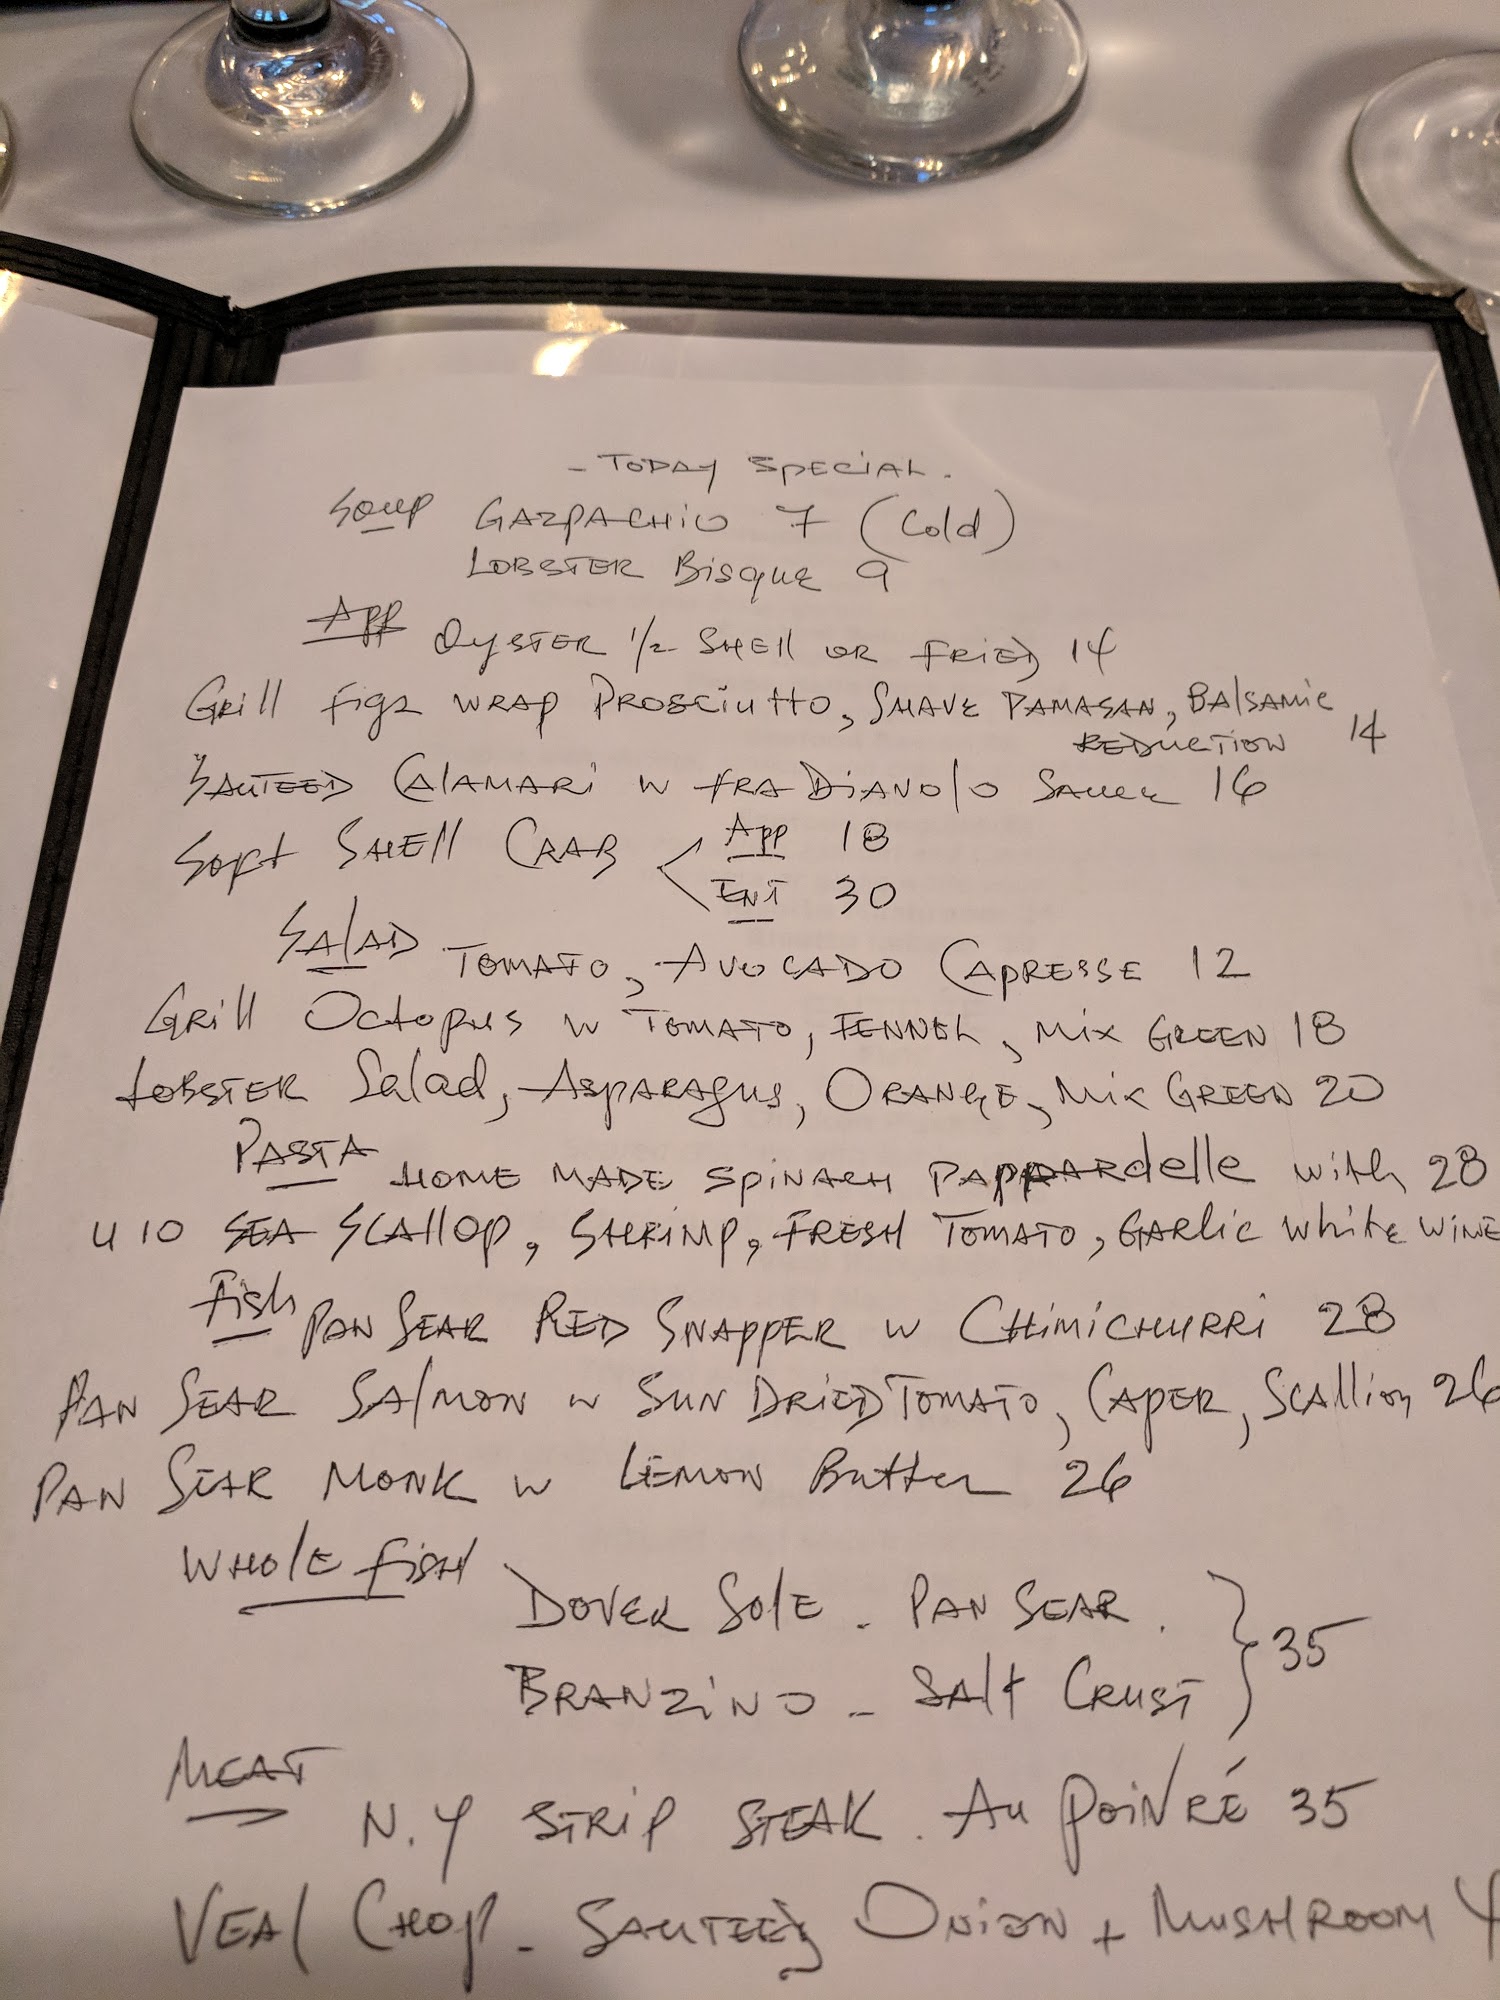 - TODAY SPECIAL.
Soup GAZPACHIO 7 (Cold)
LOBSTER BisquE 9
App OYSTER 1/2 SHEll OR FRIED 14
GRill Figs WRAP PROSCiuttO, SHAVE PAMASAN, BAlSAMiC
REDUCTION 14
SAUTEED CAlAMARi W FRA DiAVOlO SAUCE 16
Soft SHEll CRAB App 18
ENT 30
SAlAD TOMATO, AVOCADO CAPRESSE 12
GRill Octopus W TOMATO, FENNEL, MiX GREEN 18
LOBSTER Salad, ASPARAGUS, ORANGE, MiX GREEN 20
PASTA HOME MADE SPiNACH PAPPARdelle with 28
U 10 SEA SCAllOP, SHRiMP, FRESH TOMATO, GARliC WhitE WiNE
Fish PAN SEAR RED SNAPPER W CHiMiCHURRi 28
PAN SEAR SAlMON W SUN DRiED TOMATO, CAPER, SCAlliON 26
PAN SEAR MONK W LEMON ButtER 26
WHOlE FiSH DOVER SOlE - PAN SEAR.
BRANZiNO - SAlt CRUST 35
MEAT N.Y STRiP STEAK. Au POiVRÉ 35
VEAl CHOP - SAUTEED ONiON + MUSHROOM 4